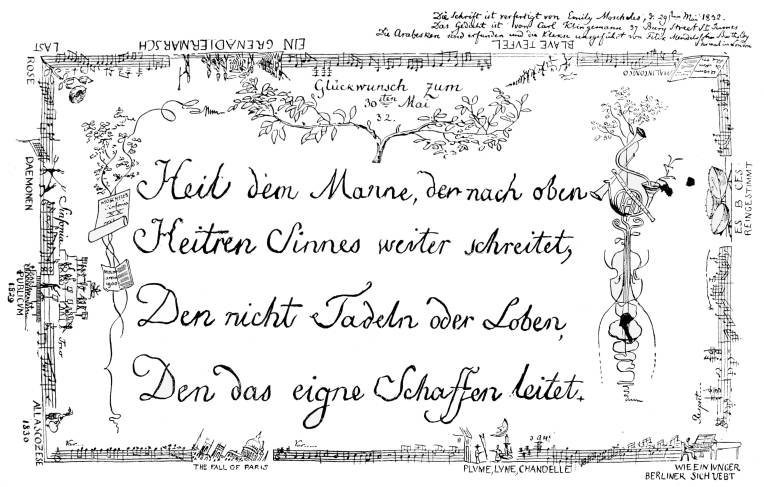 Die Schrift ist verfertigt von Emily Moscheles, d. 29sten Mai 1832.
Das Gedicht ist von Carl Klingemann 37 Bury Street St. James
Die Arabesken sind erfunden und die Klexe ausgeführt von Felix Mendelssohn Bartholdy
LAST
ROSE
EIN GRENADIERMARSCH
BLAVE TEVFEL
MALINCONICO
Glückwunsch zum
30sten Mai
32.
Heil dem Manne, der nach oben
Heitren Sinnes weiter schreitet,
Den nicht Tadeln oder Loben,
Den das eigne Schaffen leitet.
DAEMONEN
Sinfonia
PUBLICVM
1829
Trio
ALLA SCOZESE
1830
ES B CES
REINGESTIMMT
THE FALL OF PARIS
PLVME, LVNE, CHANDELLE
WIE EIN IVNGER
BERLINER SICH VEBT